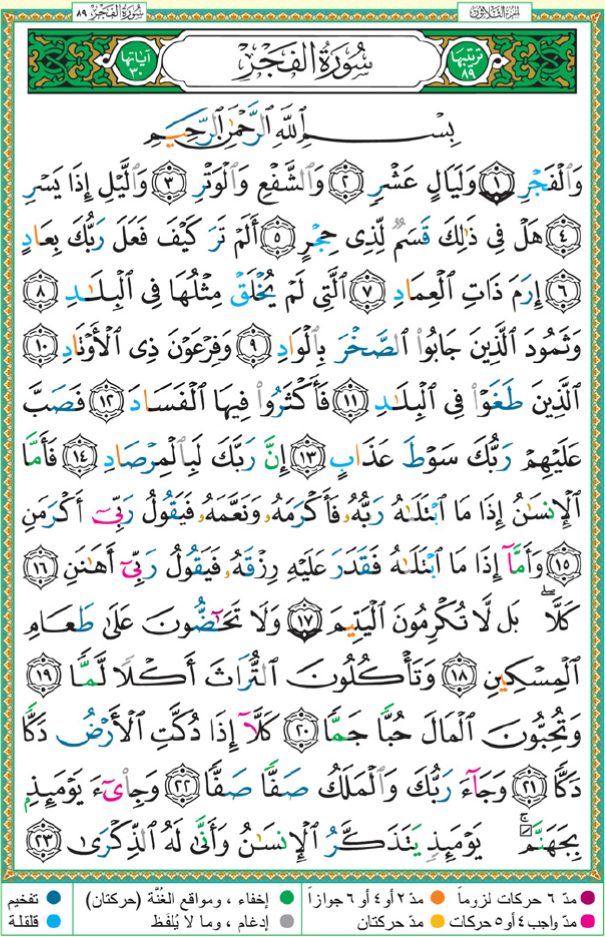 سُورَةُ الفَجْرِ ٨٩
الجزء الثلاثون
آياتها ٣٠
سُورَةُ الفَجْرِ
ترتيبها ٨٩
بِسْمِ ٱللَّهِ ٱلرَّحْمَٰنِ ٱلرَّحِيمِ
وَٱلْفَجْرِ ١ وَلَيَالٍ عَشْرٍ ٢ وَٱلشَّفْعِ وَٱلْوَتْرِ ٣ وَٱلَّيْلِ إِذَا يَسْرِ
٤ هَلْ فِى ذَٰلِكَ قَسَمٌ لِّذِى حِجْرٍ ٥ أَلَمْ تَرَ كَيْفَ فَعَلَ رَبُّكَ بِعَادٍ
٦ إِرَمَ ذَاتِ ٱلْعِمَادِ ٧ ٱلَّتِى لَمْ يُخْلَقْ مِثْلُهَا فِى ٱلْبِلَٰدِ ٨
وَثَمُودَ ٱلَّذِينَ جَابُوا۟ ٱلصَّخْرَ بِٱلْوَادِ ٩ وَفِرْعَوْنَ ذِى ٱلْأَوْتَادِ ١٠
ٱلَّذِينَ طَغَوْا۟ فِى ٱلْبِلَٰدِ ١١ فَأَكْثَرُوا۟ فِيهَا ٱلْفَسَادَ ١٢ فَصَبَّ
عَلَيْهِمْ رَبُّكَ سَوْطَ عَذَابٍ ١٣ إِنَّ رَبَّكَ لَبِٱلْمِرْصَادِ ١٤ فَأَمَّا
ٱلْإِنسَٰنُ إِذَا مَا ٱبْتَلَىٰهُ رَبُّهُۥ فَأَكْرَمَهُۥ وَنَعَّمَهُۥ فَيَقُولُ رَبِّىٓ أَكْرَمَنِ
١٥ وَأَمَّآ إِذَا مَا ٱبْتَلَىٰهُ فَقَدَرَ عَلَيْهِ رِزْقَهُۥ فَيَقُولُ رَبِّىٓ أَهَٰنَنِ ١٦
كَلَّا ۖ بَل لَّا تُكْرِمُونَ ٱلْيَتِيمَ ١٧ وَلَا تَحَٰٓضُّونَ عَلَىٰ طَعَامِ
ٱلْمِسْكِينِ ١٨ وَتَأْكُلُونَ ٱلتُّرَاثَ أَكْلًا لَّمًّا ١٩
وَتُحِبُّونَ ٱلْمَالَ حُبًّا جَمًّا ٢٠ كَلَّآ إِذَا دُكَّتِ ٱلْأَرْضُ دَكًّا
دَكًّا ٢١ وَجَآءَ رَبُّكَ وَٱلْمَلَكُ صَفًّا صَفًّا ٢٢ وَجِا۟ىٓءَ يَوْمَئِذٍۭ
بِجَهَنَّمَ ۚ يَوْمَئِذٍ يَتَذَكَّرُ ٱلْإِنسَٰنُ وَأَنَّىٰ لَهُ ٱلذِّكْرَىٰ ٢٣
مدّ ٦ حركات لزوماً مدّ ٢ أو ٤ أو ٦ جوازاً إخفاء ، ومواقع الغُنَّة (حركتان) تفخيم
مدّ واجب ٤ أو ٥ حركات مدّ حركتان إدغام ، وما لا يُلفَظ قلقلة